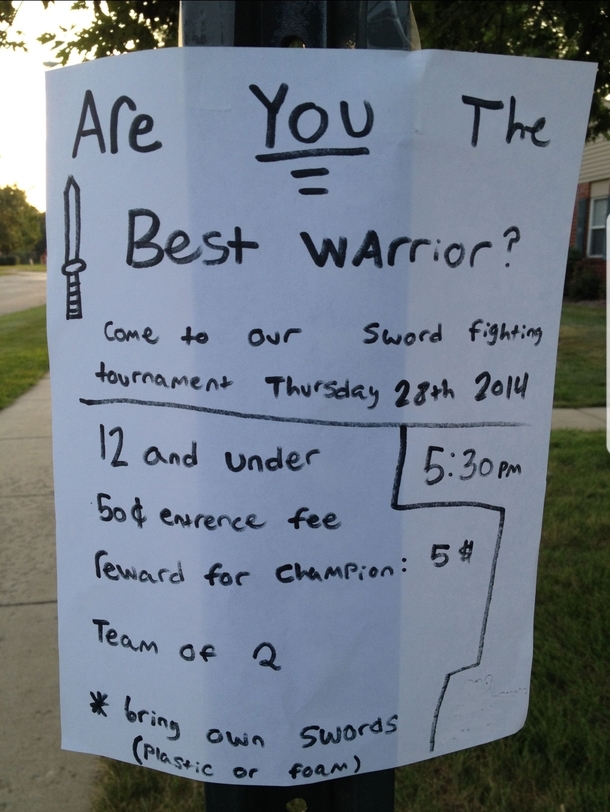 Are YOU The
Best WArrior?
Come to our Sword fighting
tournament Thursday 28th 2014
12 and under
5:30 PM
50¢ entrence fee
reward for Champion: 5$
Team of 2
* bring own Swords
(Plastic or foam)